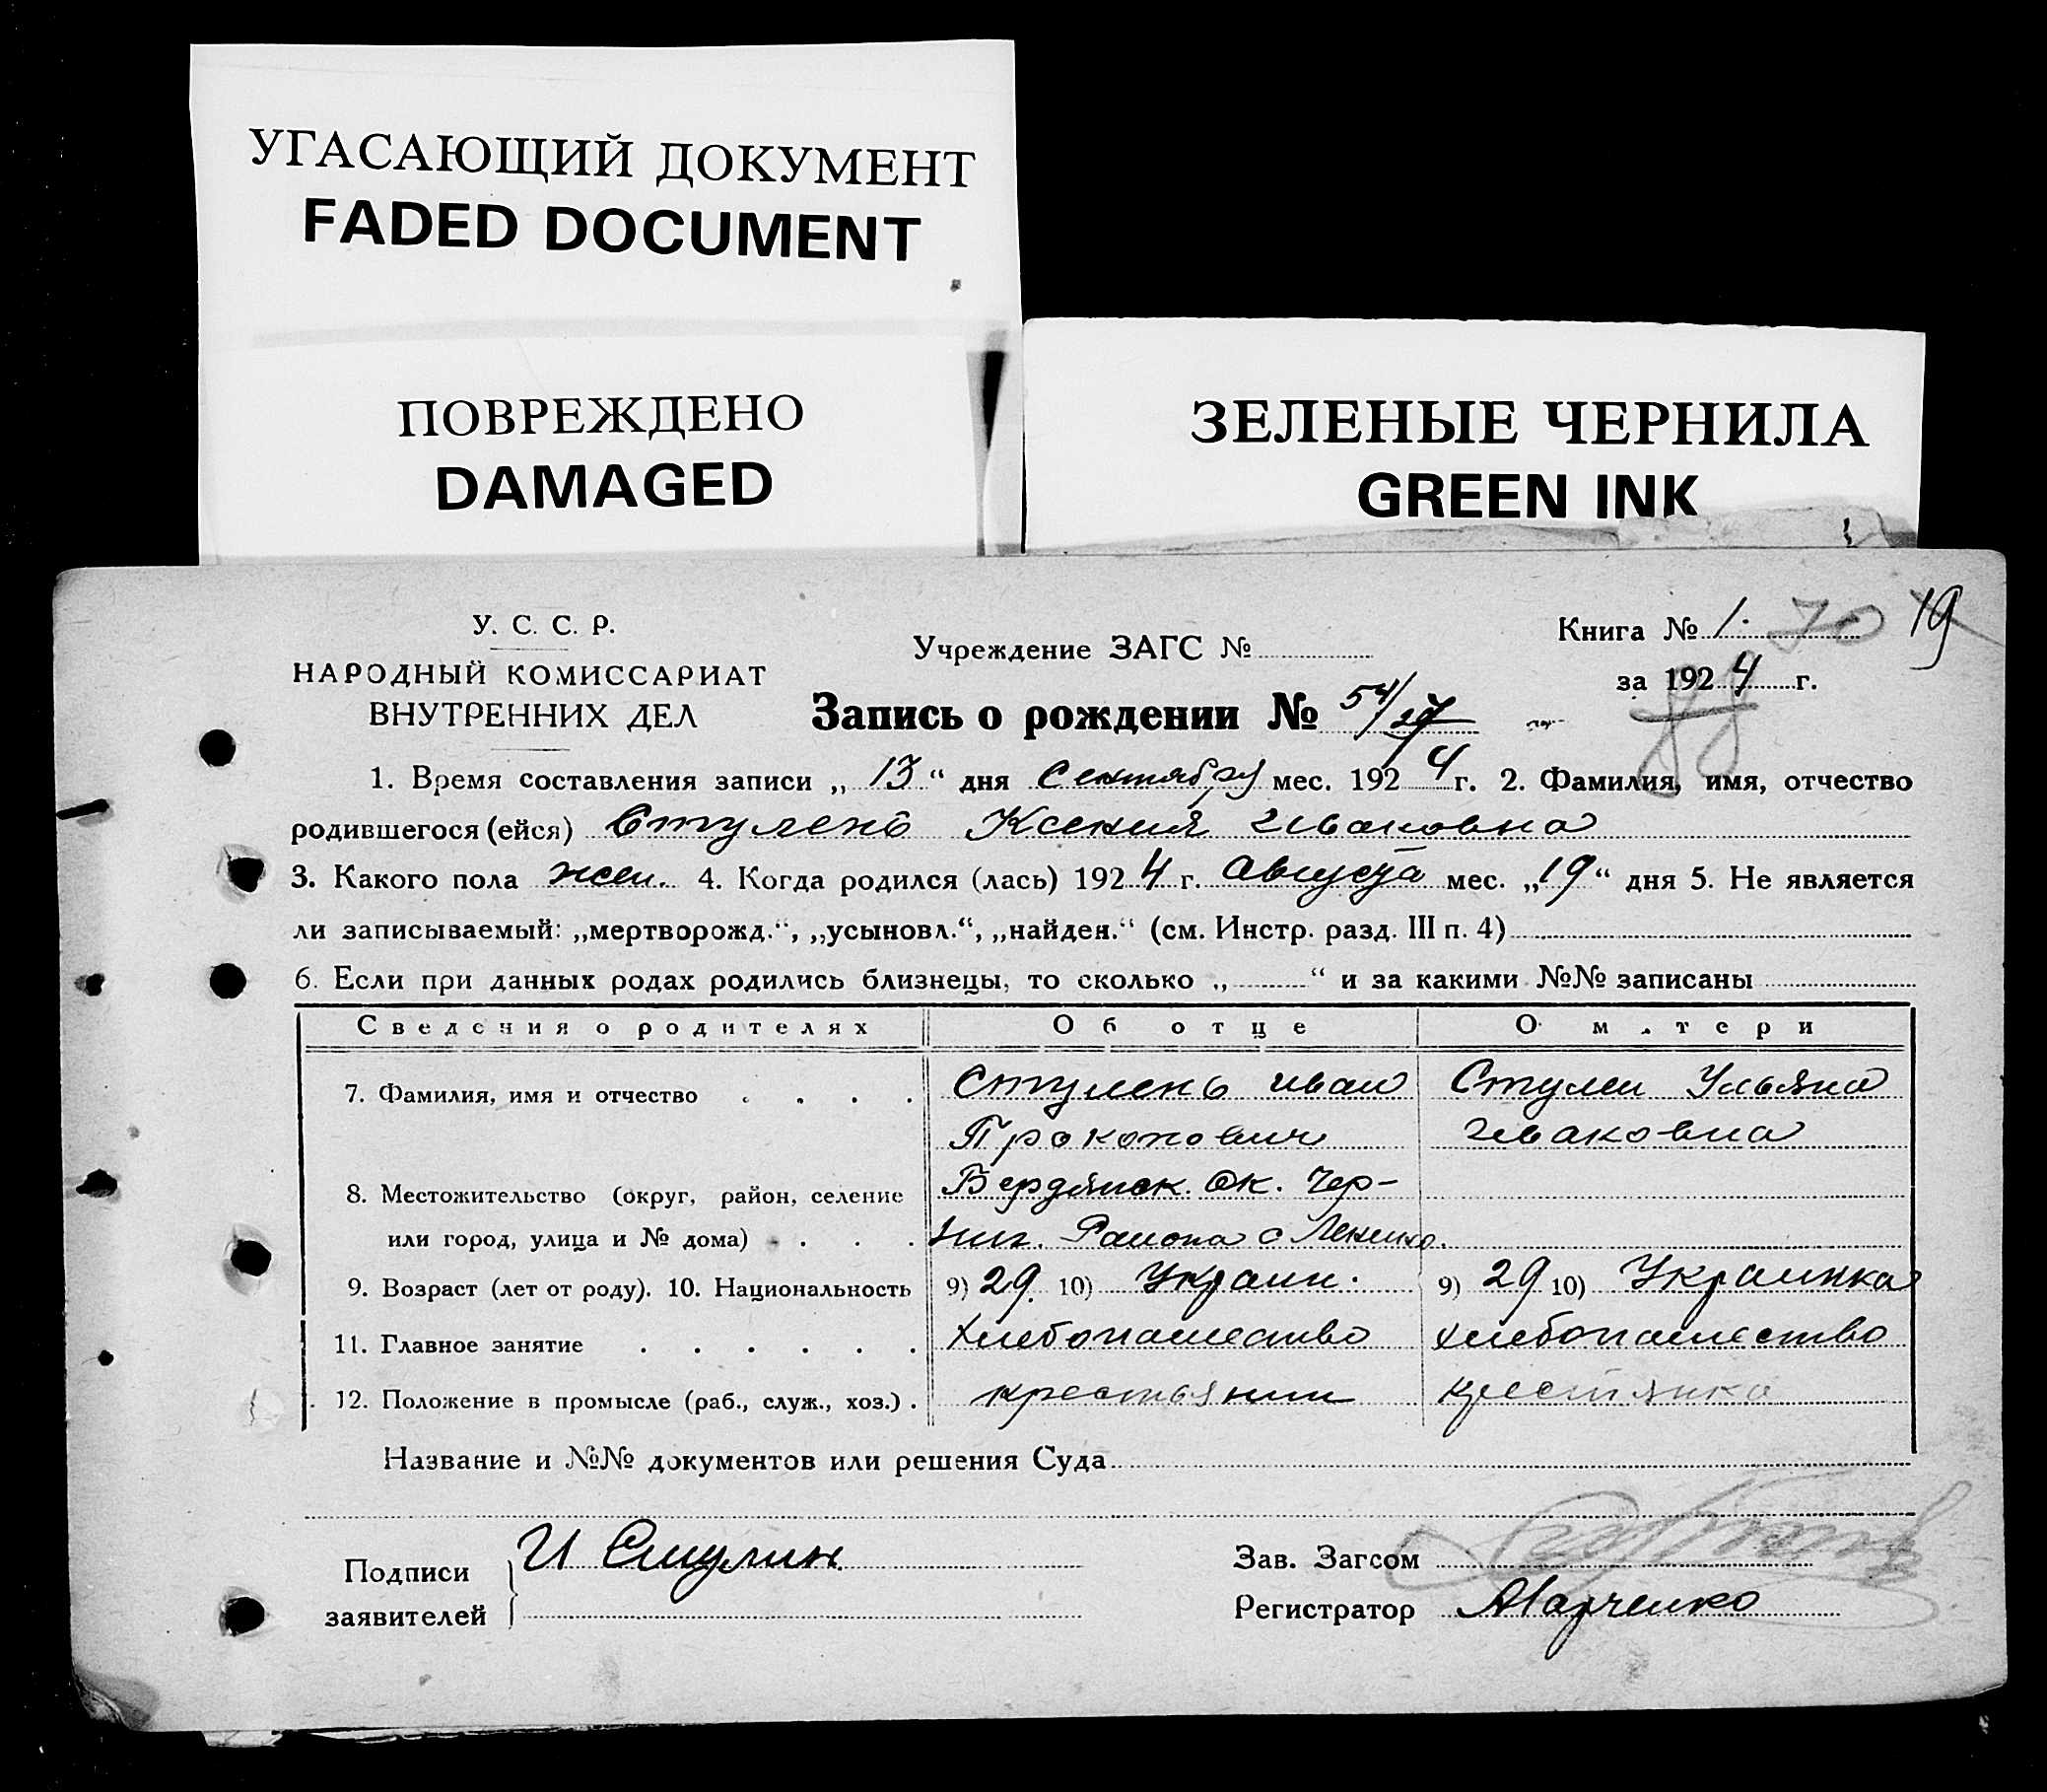 УГАСАЮЩИЙ ДОКУМЕНТ
FADED DOCUMENT
ПОВРЕЖДЕНО
DAMAGED
ЗЕЛЕНЫЕ ЧЕРНИЛА
GREEN INK
У. С. С. Р.
НАРОДНЫЙ КОМИССАРИАТ
ВНУТРЕННИХ ДЕЛ
Учреждение ЗАГС №
Запись о рождении № 54/27
Книга № 1. 70 19
за 1924 г.
1. Время составления записи „13“ дня Сентября мес. 1924 г. 2. Фамилия, имя, отчество
родившегося (ейся) Стулень Ксения Ивановна
3. Какого пола жен. 4. Когда родился (лась) 1924 г. Августа мес. „19“ дня 5. Не является
ли записываемый: „мертворожд.“, „усыновл.“, „найден.“ (см. Инстр. разд. III п. 4)
6. Если при данных родах родились близнецы, то сколько „ “ и за какими №№ записаны
Сведения о родителях Об отце О матери
7. Фамилия, имя и отчество Стулень Иван Стулен Ульяна
Прокопович Ивановна
8. Местожительство (округ, район, селение Бердянск. Ок. Чер-
или город, улица и № дома) ниг. Района с
9. Возраст (лет от роду). 10. Национальность 9) 29. 10) Украин. 9) 29 10) Украинка
11. Главное занятие Хлебопашество Хлебопашество
12. Положение в промысле (раб., служ., хоз.) крестьянин крестянка
Название и №№ документов или решения Суда
Подписи И Стулин
заявителей
Зав. Загсом
Регистратор Марченко